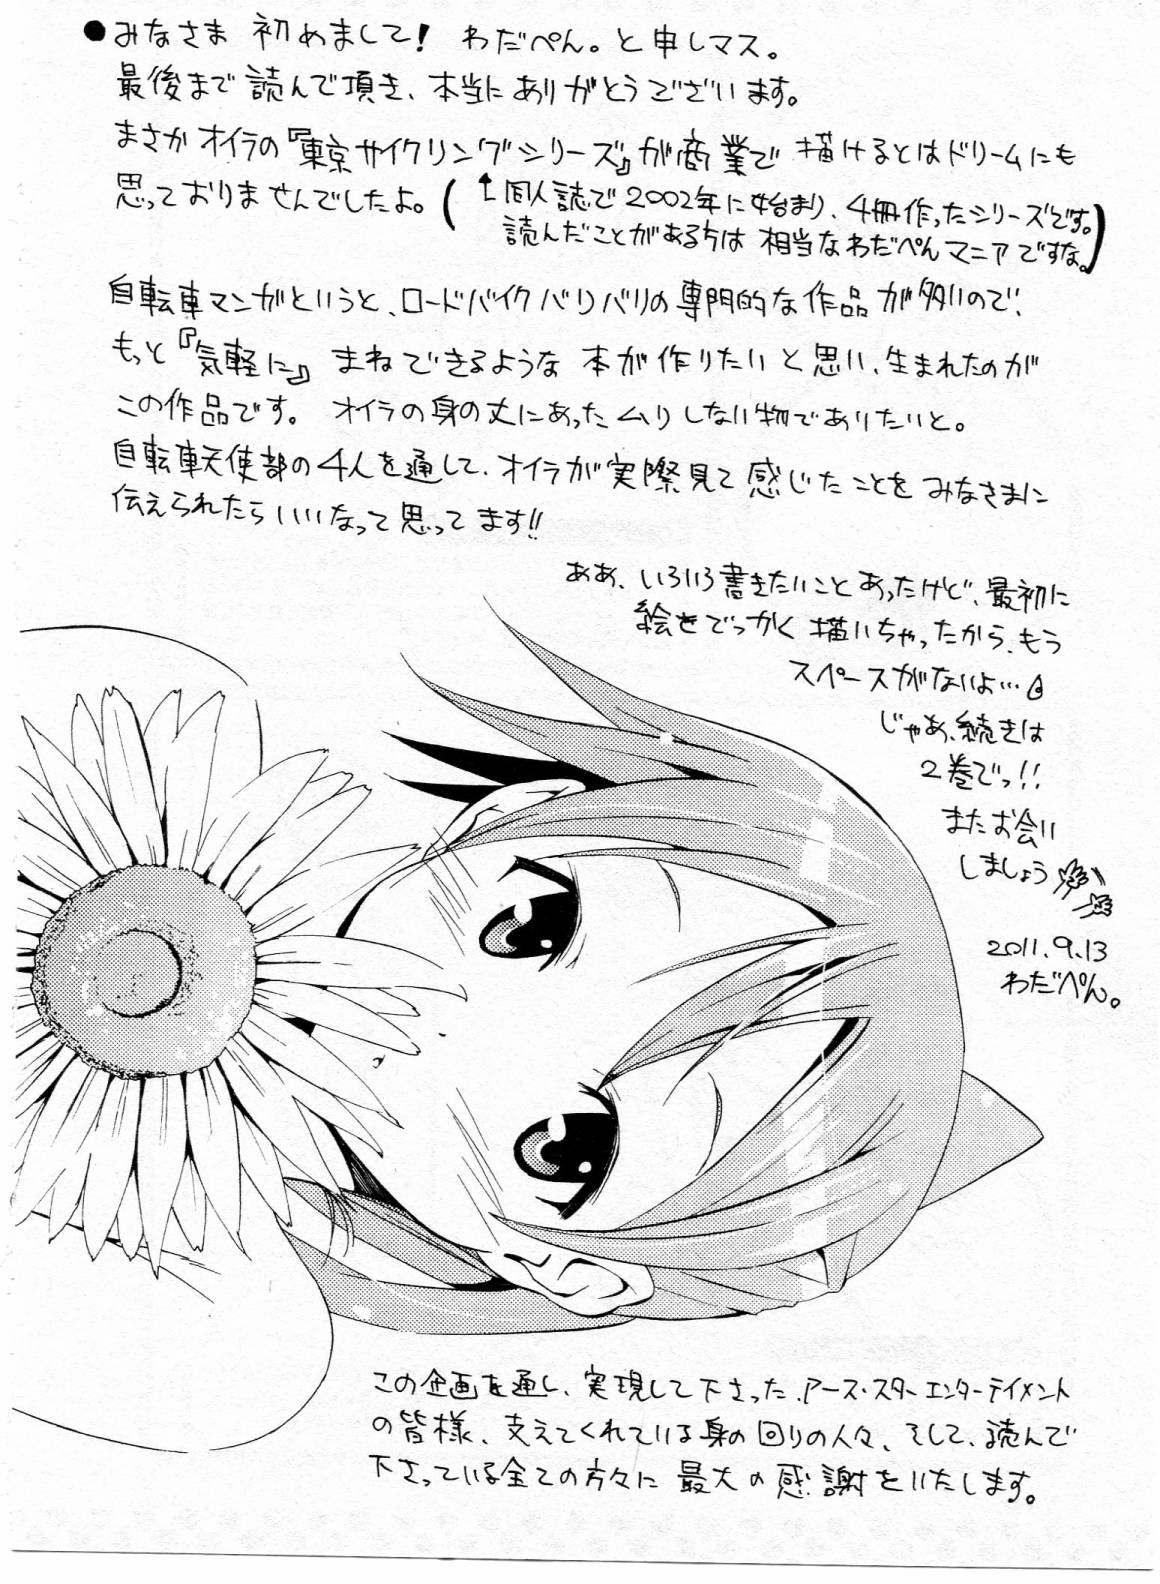 ●みなさま 初めまして! わだぺん。と申しマス。
最後まで読んで頂き、本当にありがとうございます。
まさかオイラの『東京サイクリングシリーズ』が商業で 描けるとはドリームにも
思っておりませんでしたよ。(↑同人誌で2002年に始まり、4冊作ったシリーズです。
読んだことがある方は 相当なわだぺんマニアですな。)
自転車マンガというと、ロードバイクバリバリの専門的な作品が多いので、
もっと『気軽に』 まねできるような 本が作りたいと思い、生まれたのが
この作品です。 オイラの身の丈にあった ムリしない物でありたいと。
自転車天使部の4人を通して、オイラが実際見て感じたことをみなさまに
伝えられたらいいなって思ってます!!
ああ、いろいろ書きたいことあったけど、最初に
絵をでっかく描いちゃったから、もう
スペースがないよ…
じゃあ、続きは
2巻でっ!!
またお会い
しましょう
2011.9.13
わだぺん。
この企画を通し、実現して下さった、アース・スターエンターテイメント
の皆様、支えてくれている身の回りの人々、そして、読んで
下さっている全ての方々に 最大の感謝をいたします。